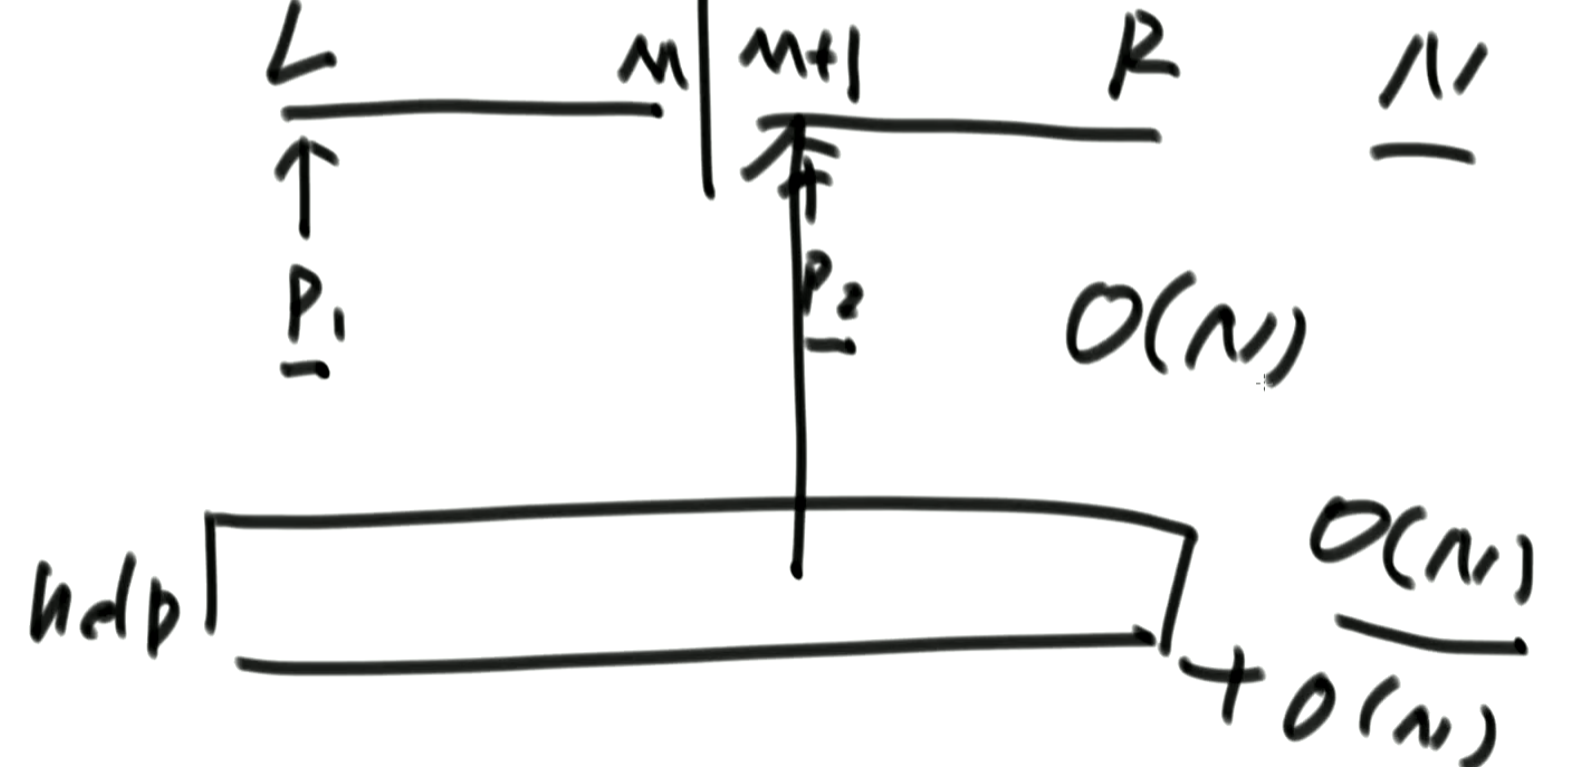 L M M+1 R N
P1 P2
O(N)
help O(N)
+ O(N)